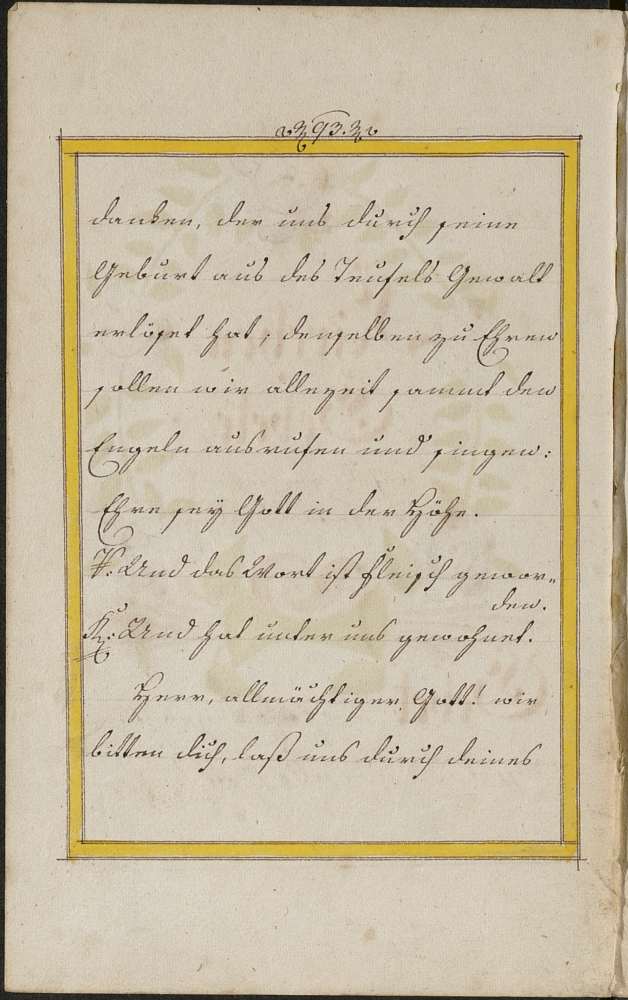 93.
danken, der uns durch seine
Geburt aus des Teufels Gewalt
erlöset hat, denselben zu Ehren
sollen wir allezeit sammt den
Engeln ausrufen und singen:
Ehre sey Gott in der Höhe.
℣: Und das Wort ist Fleisch gewor„
den.
℟: Und hat unter uns gewohnet.
Herr, allmächtiger Gott! wir
bitten dich, laß uns durch deines